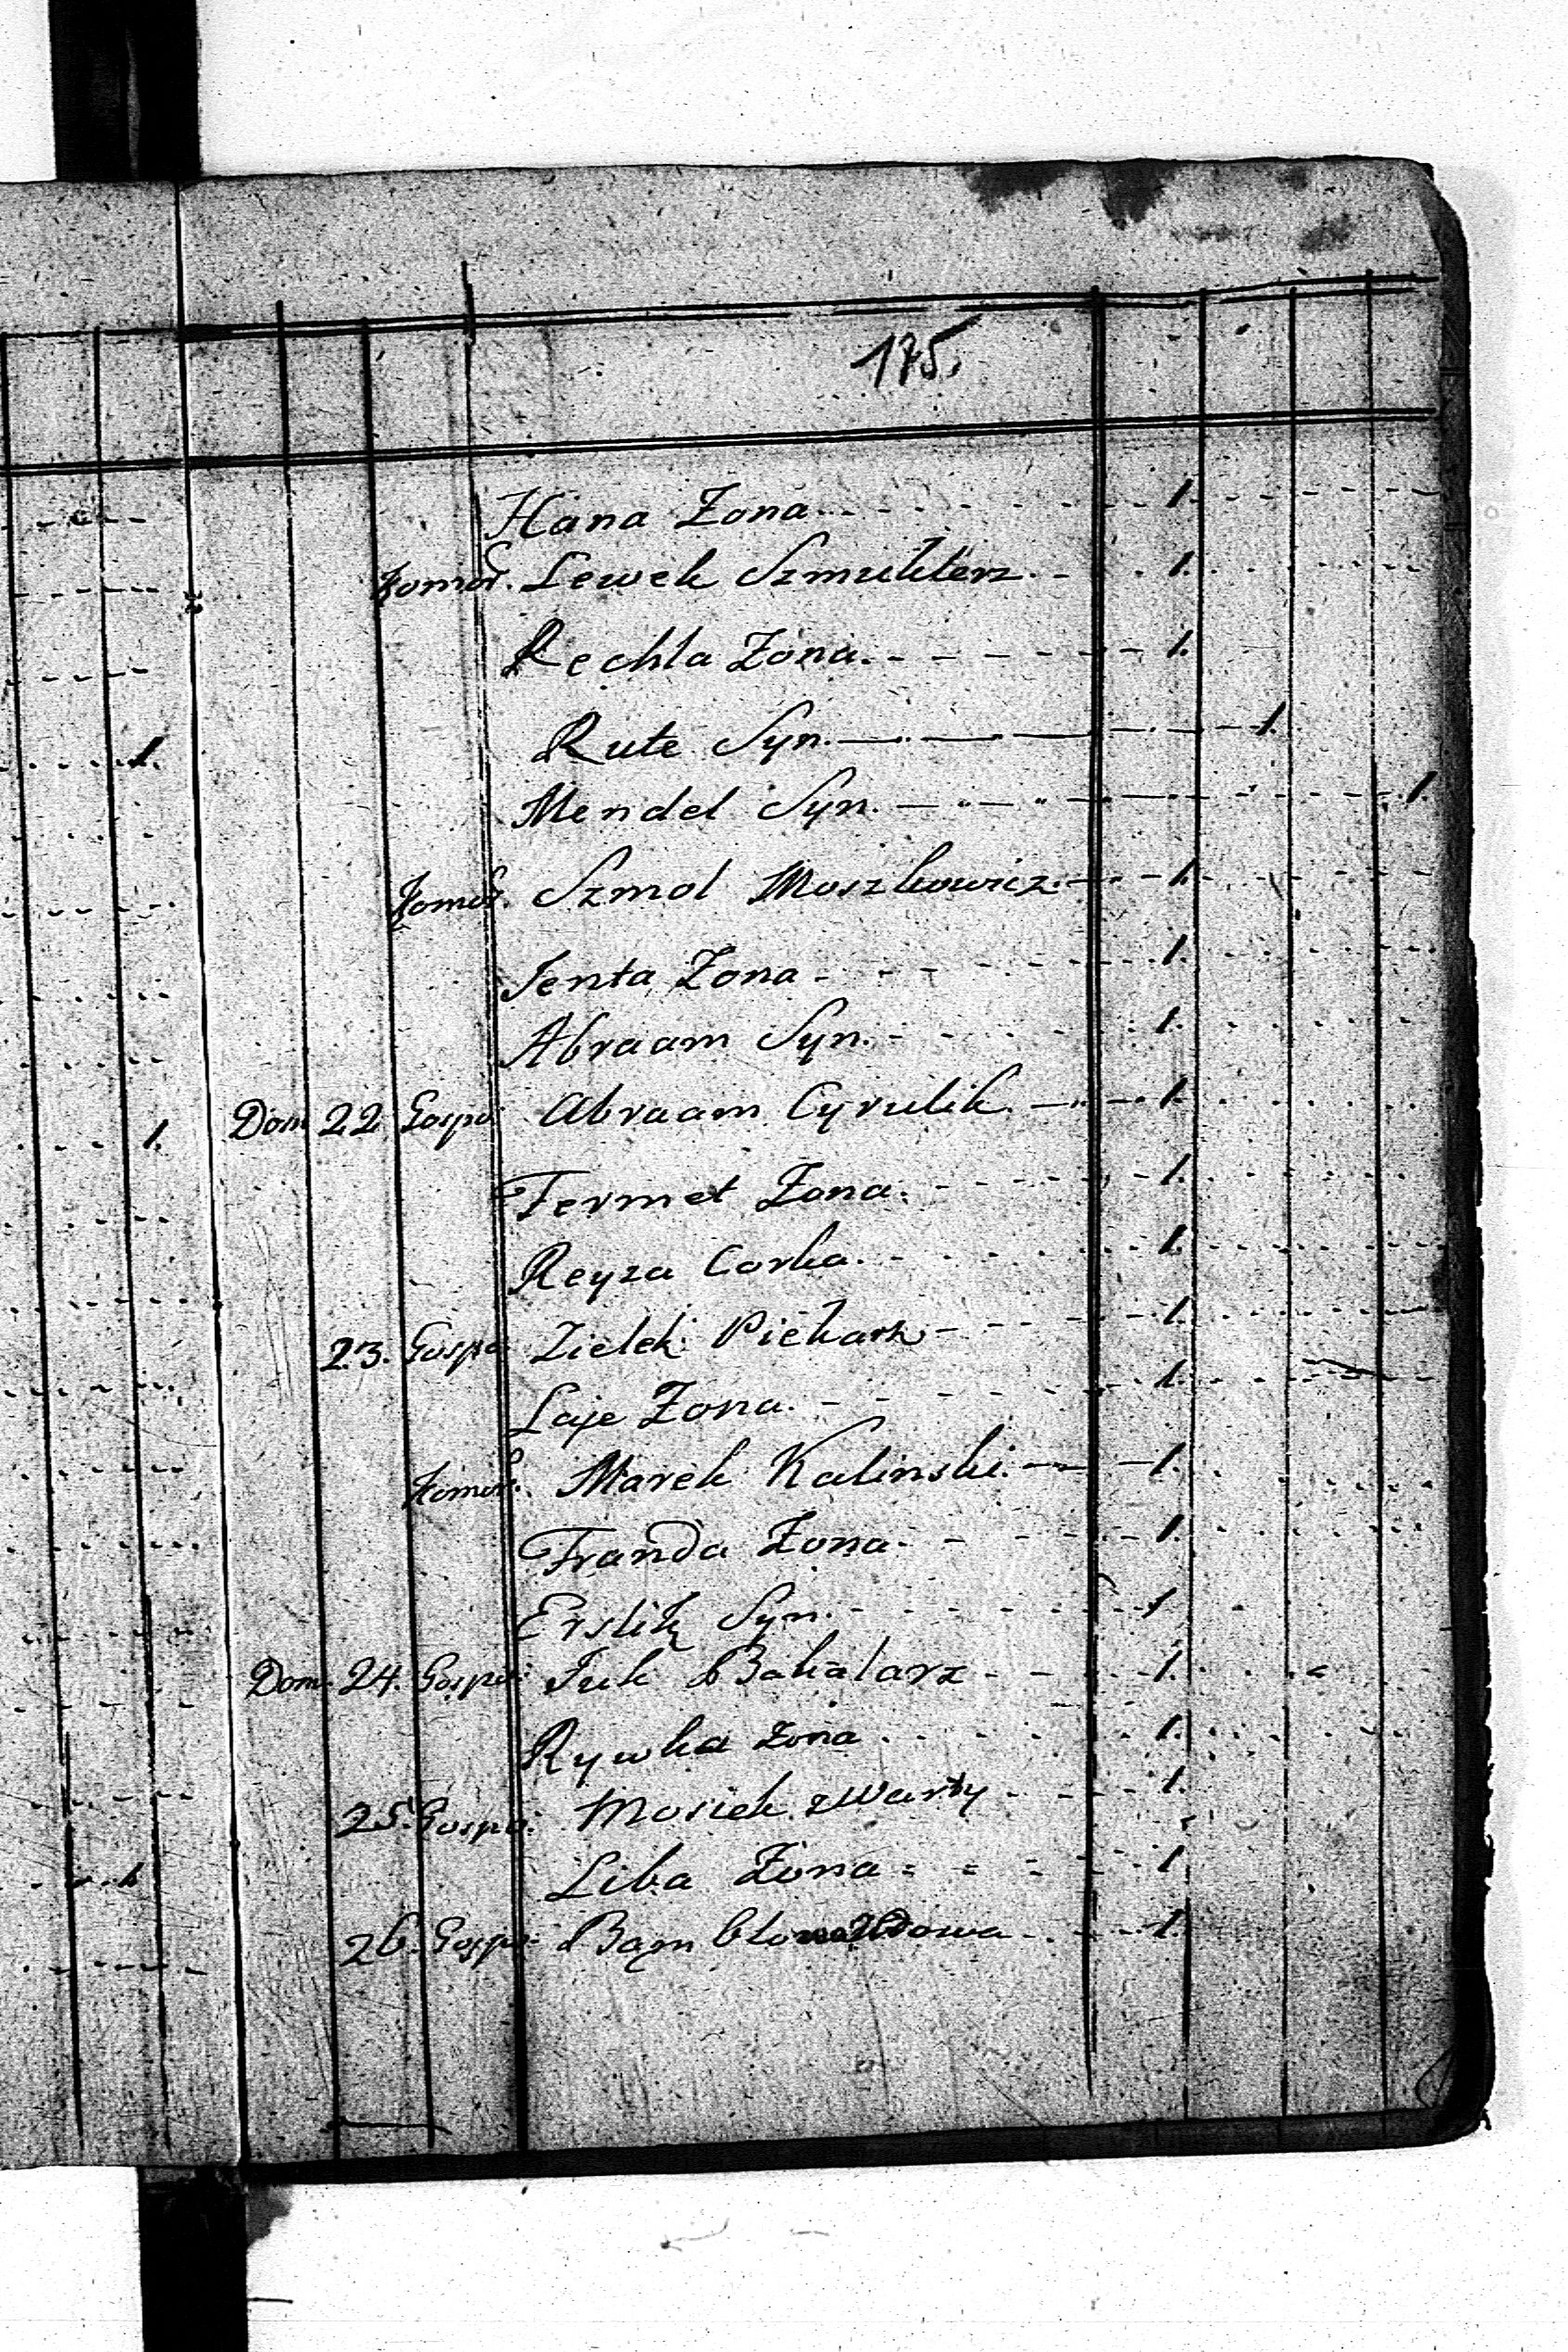 175.
Hana Zona 1.
Komor. Lewek Szmuklerz 1.
Rechla Zona 1.
Rute Syn 1.
Mendel Syn 1.
Komor. Szmol Moszkowicz 1.
Jenta Zona 1.
Abraam Syn 1.
Dom 22 Gospo: Abraam Cyrulik 1.
Fermet Zona 1.
Reyza Corka 1.
23. Gospo: Zielek Piekarz 1.
Laje Zona 1.
Komor. Marek Kalinski 1.
Franda Zona 1.
Erslik Syn 1
Dom. 24. Gospo: Bakalarz 1.
Rywka Zona 1.
25. Gospo: Mosiek 1.
Liba Zona 1
26. Gospo: Wdowa 1.